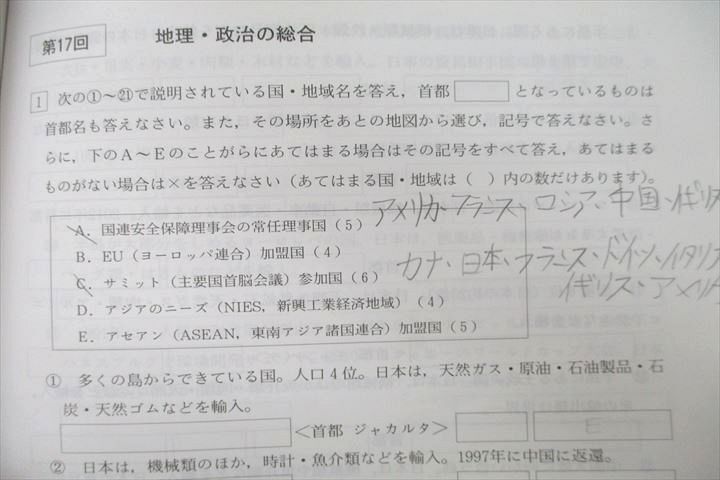 第17回
地理・政治の総合
1 次の①～㉑で説明されている国・地域名を答え，首都 となっているものは
首都名も答えなさい。また，その場所をあとの地図から選び，記号で答えなさい。さ
らに，下のA～Eのことがらにあてはまる場合はその記号をすべて答え，あてはまる
ものがない場合は×を答えなさい（あてはまる国・地域は（ ）内の数だけあります）。
A．国連安全保障理事会の常任理事国（5） アメリカ、フランス、ロシア、中国、イギリス
B．EU（ヨーロッパ連合）加盟国（4）
C．サミット（主要国首脳会議）参加国（6） カナ、日本、フランス、ドイツ、イタリア
イギリス、アメリカ
D．アジアのニーズ（NIES，新興工業経済地域）（4）
E．アセアン（ASEAN，東南アジア諸国連合）加盟国（5）
① 多くの島からできている国。人口4位。日本は，天然ガス・原油・石油製品・石
炭・天然ゴムなどを輸入。
＜首都 ジャカルタ＞
② 日本は，機械類のほか，時計・魚介類などを輸入。1997年に中国に返還。